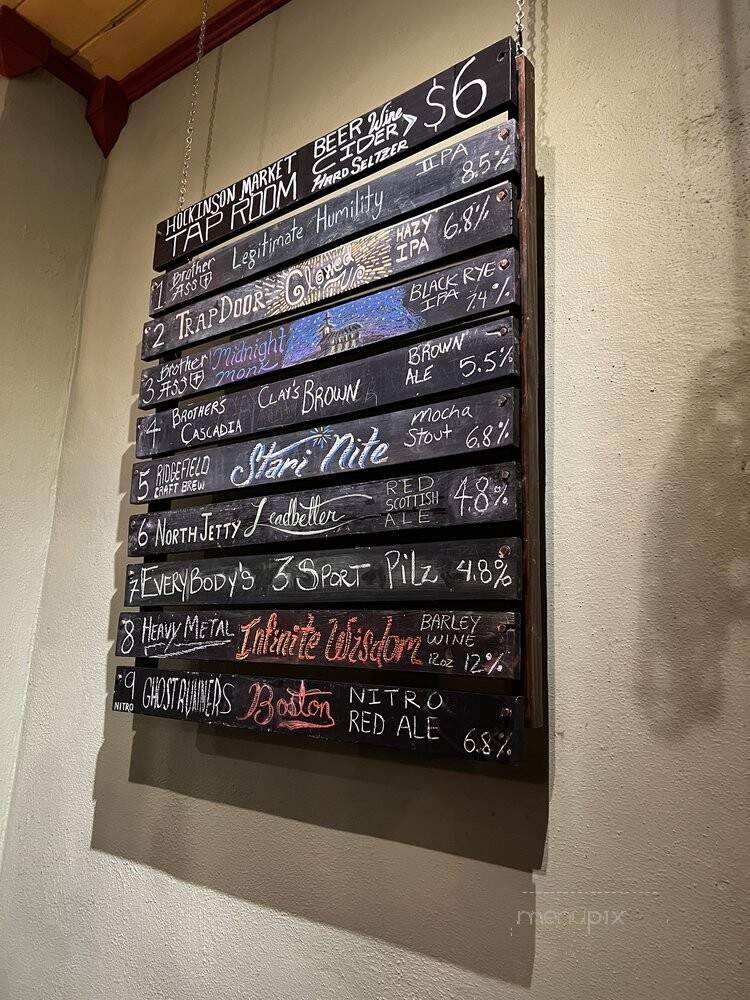 HOCKINSON MARKET
TAP ROOM
BEER Wine
CIDER >
HARD SELTZER
$6
1 Brother Ass Legitimate Humility IIPA 8.5%
2 TRAPDOOR - Glowed Up HAZY IPA 6.8%
3 Brother Ass Midnight monk BLACK RYE IPA 7.4%
4 BROTHER'S CASCADIA CLAY'S BROWN BROWN ALE 5.5%
5 RIDGEFIELD CRAFT BREW Stari Nite mocha Stout 6.8%
6 NORTH JETTY Leadbetter RED SCOTTISH ALE 4.8%
7 EVERYBODY'S 3 SPORT PilZ 4.8%
8 HEAVY METAL Infinite Wisdom BARLEY WINE 12oz 12%
9 NITRO GHOSTRUNNERS Boston NITRO RED ALE 6.8%
menupix